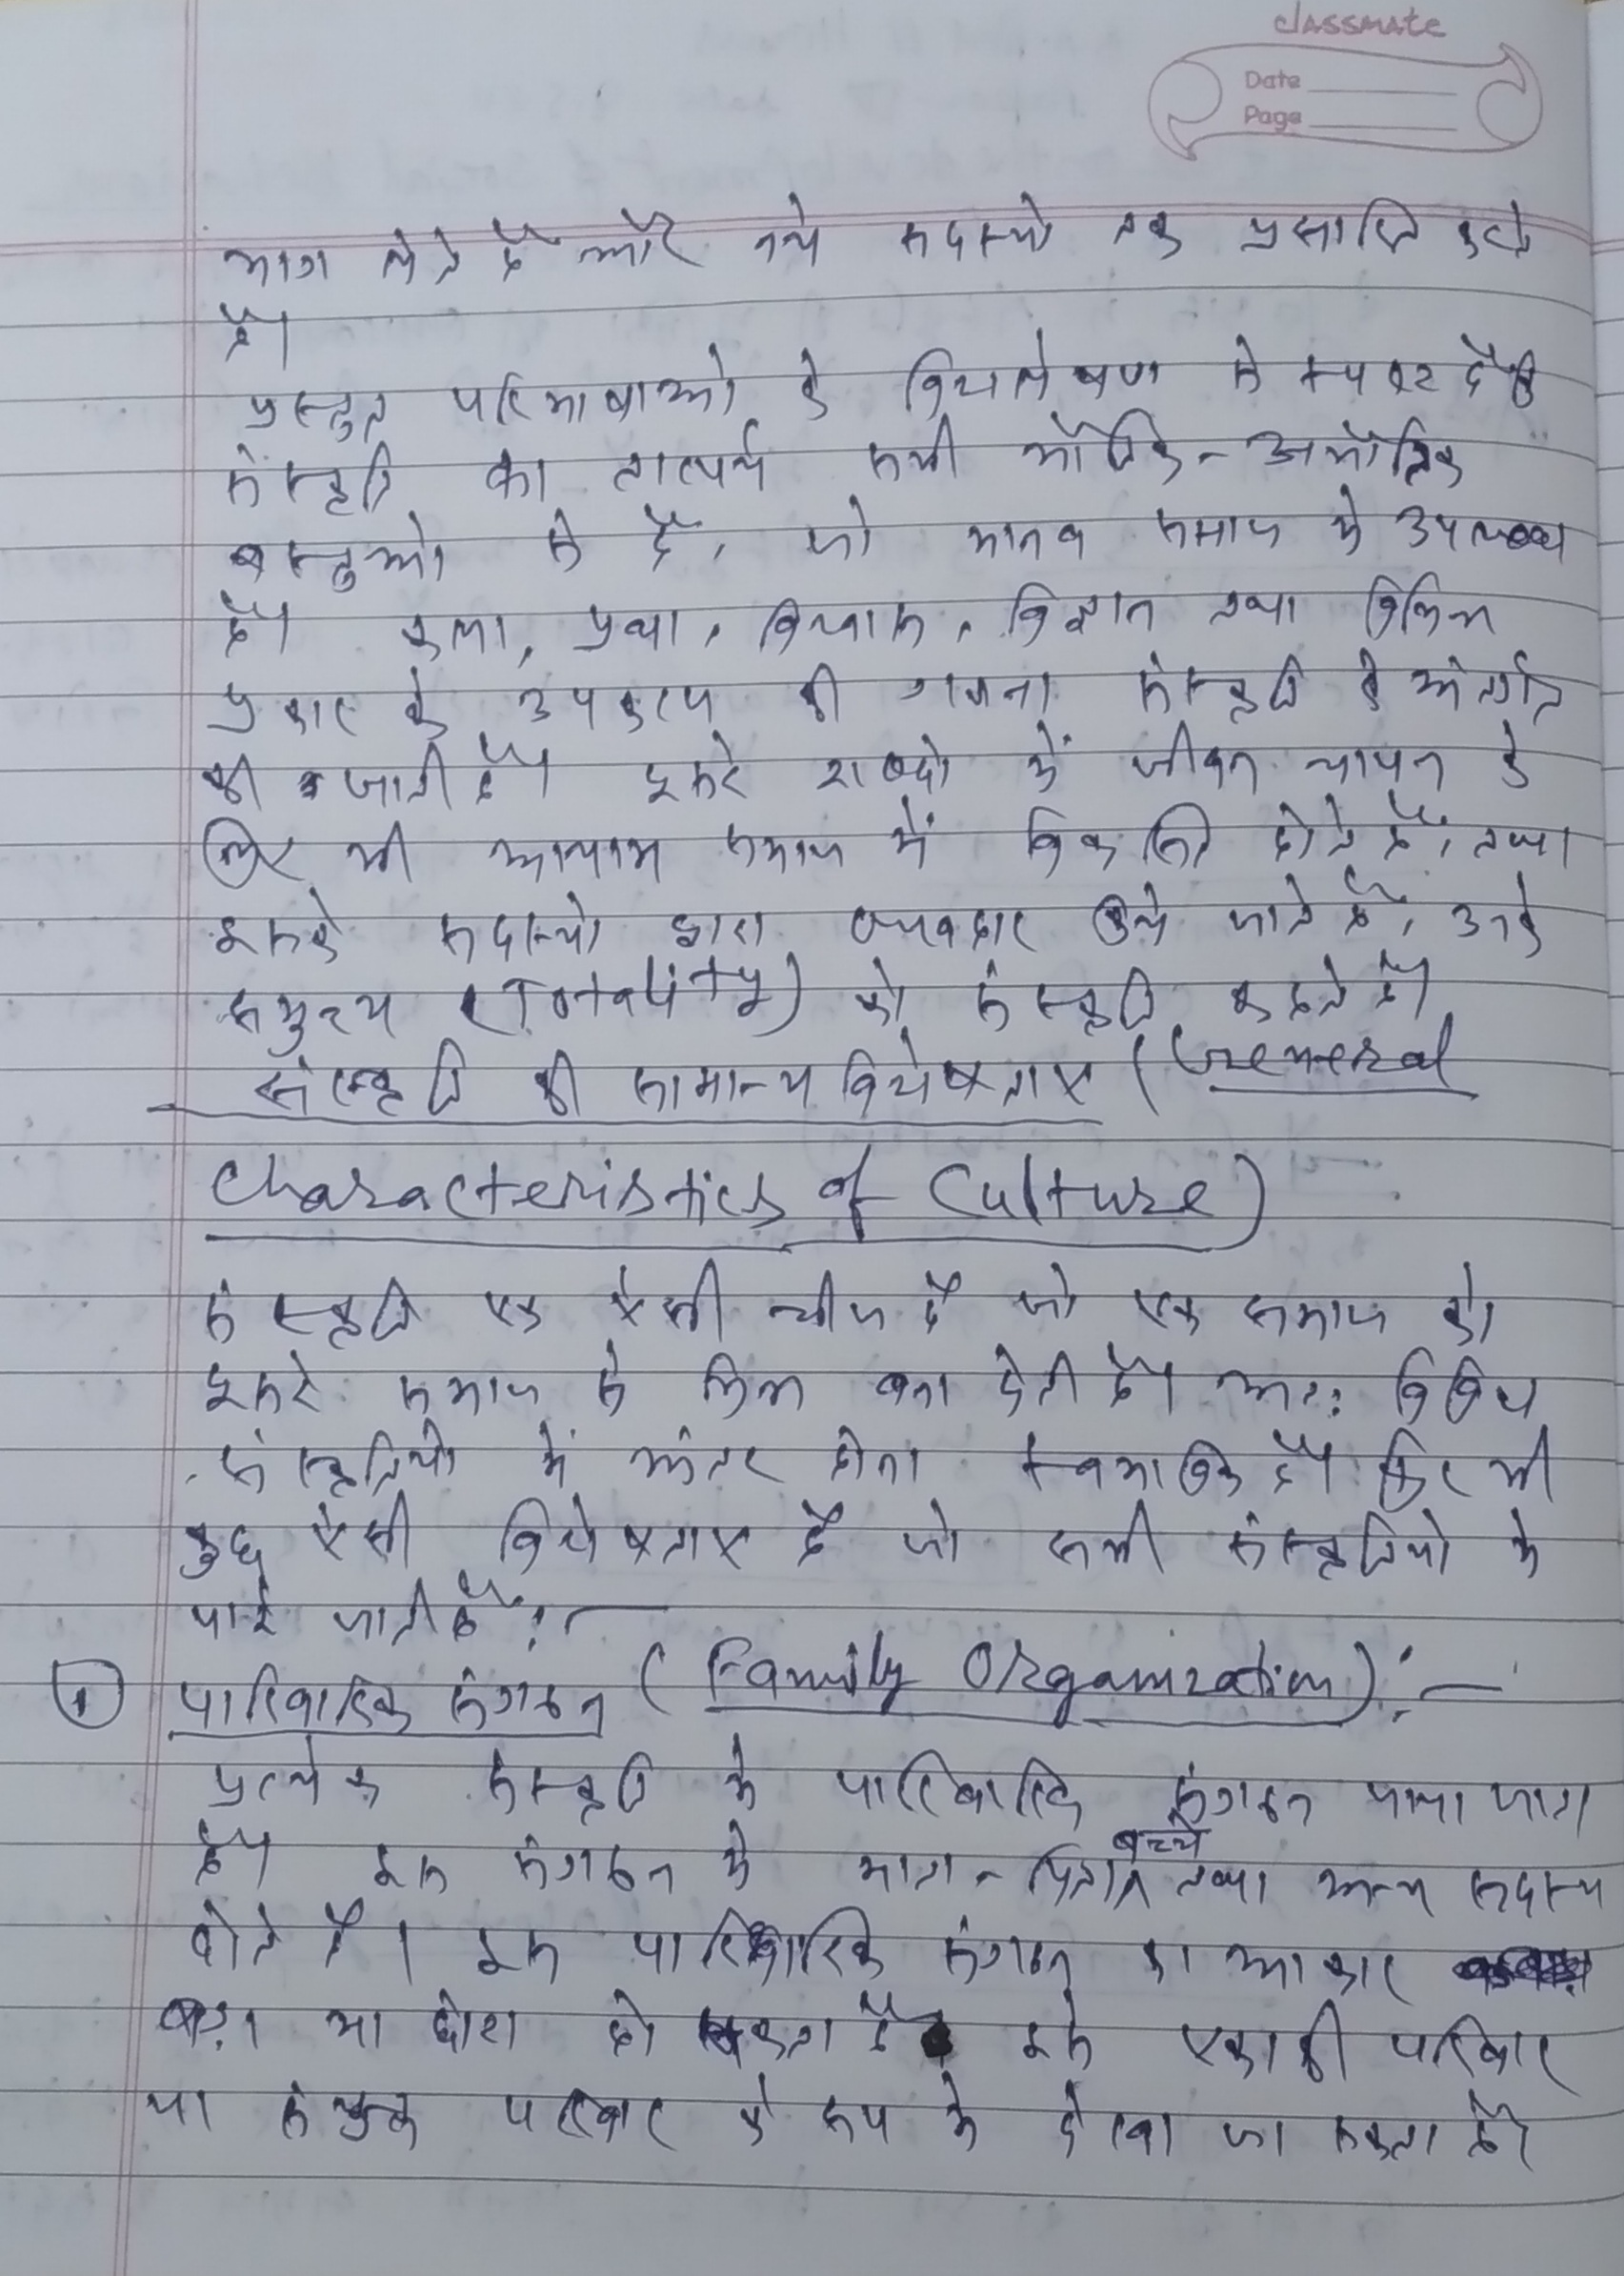 classmate
Date
Page
भाग लेते हैं और नये सदस्यो तक प्रसारित करते
हैं।
प्रस्तुत परिभाषाओ के विश्लेषण से स्पष्ट है कि
संस्कृति का तात्पर्य सभी भौतिक - अभौतिक
वस्तुओ से है, जो मानव समाज मे उपलब्ध
हैं। कला, प्रथा, विश्वास, विज्ञान तथा विभिन्न
प्रकार के उपकरण की गणना संस्कृति के अंतर्गत
की जाती है। दूसरे शब्दो में जीवन यापन के
लिए भी आयाम समाज में विकसित होते हैं, तथा
इसके सदस्यो द्वारा व्यवहार किये जाते हैं, उनके
समुच्चय (Totality) को संस्कृति कहते हैं।
संस्कृति की सामान्य विशेषताएं (General
Characteristics of Culture)
संस्कृति एक ऐसी चीज है जो एक समाज को
दूसरे समाज से भिन्न बना देती है। अतः विविध
संस्कृतियो में अंतर होना स्वभाविक है। फिर भी
कुछ ऐसी विशेषताए है जो सभी संस्कृतियो मे
पाई जाती हैं :—
① पारिवारिक संगठन (Family Organization) :—
प्रत्येक संस्कृति मे पारिवारिक संगठन पाया जाता
है। इस संगठन मे माता - पिता बच्चे तथा अन्य सदस्य
होते है। इस पारिवारिक संगठन का आकार
बड़ा या छोटा हो सकता है इसे एकाकी परिवार
या संयुक्त परिवार के रूप मे देखा जा सकता है।